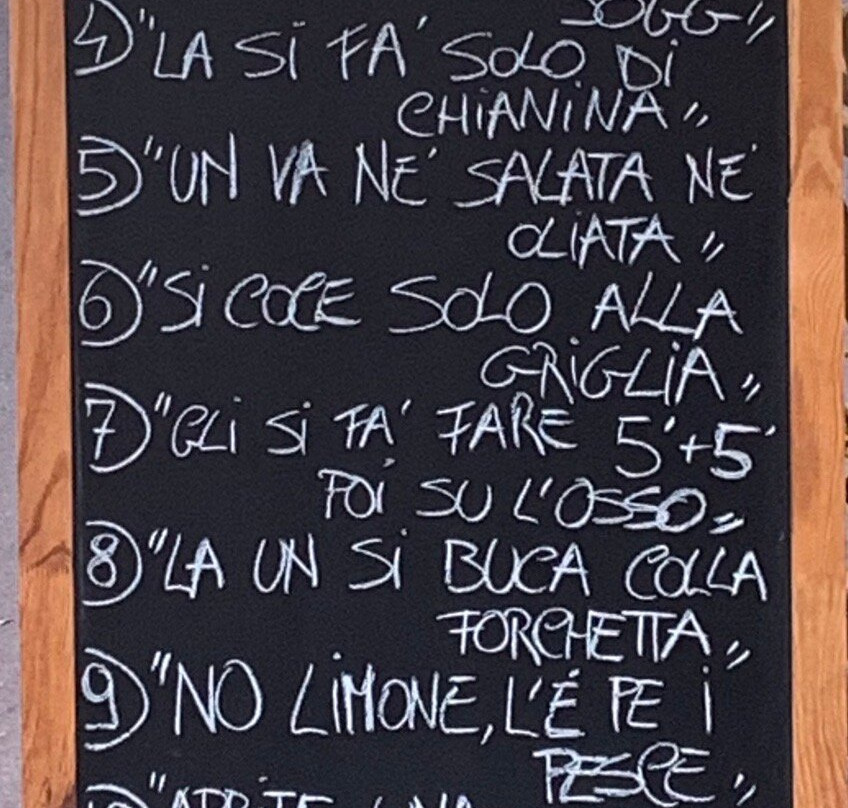 SOGG"
4) "LA SI FA' SOLO DI
CHIANINA"
5) "UN VA NE' SALATA NE'
OLIATA"
6) "SI COCE SOLO ALLA
GRIGLIA"
7) "GLI SI FA' FARE 5'+5'
POI SU L'OSSO"
8) "LA UN SI BUCA COLLA
FORCHETTA"
9) "NO LIMONE, L'É PE I
PESCE"